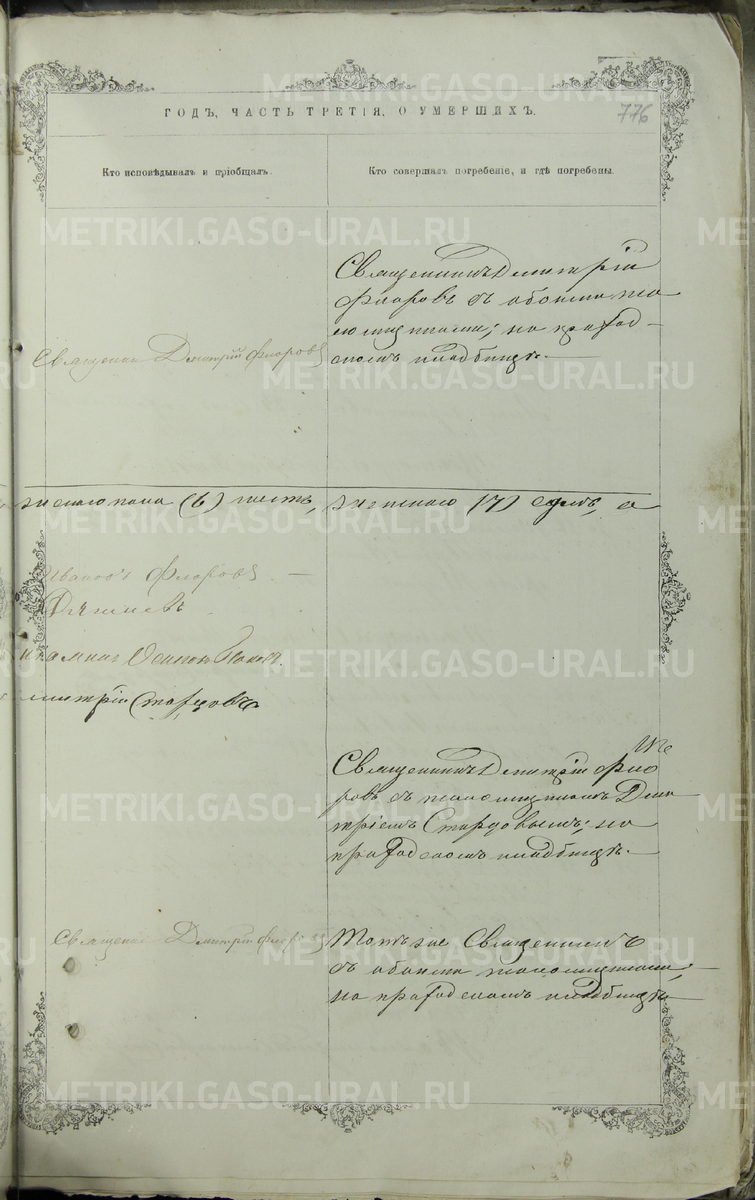 ГОДЪ, ЧАСТЬ ТРЕТІЯ, О УМЕРШИХЪ.
776
Кто исповѣдывалъ и пріобщалъ.
Кто совершалъ погребеніе, и гдѣ погребены.
Священникъ Дмитрій
Флоровъ съ обоими пса
ломщиками; на приход-
скомъ кладбищѣ.
Священникъ Дмитрій Флоровъ
женскаго пола (6) шесть,
женскаго (7) семь, а
Іванъ Флоровъ
Осипъ Поповъ
митрій Старцовъ
Священникъ Дмитрій Фло
ровъ съ псаломщикомъ Дми
тріемъ Старцовымъ; на
приходскомъ кладбищѣ.
Священникъ Дмитрій Флоровъ
Тотъ же Священникъ
съ обоими псаломщиками;
на приходскомъ кладбищѣ
METRIKI.GASO-URAL.RU